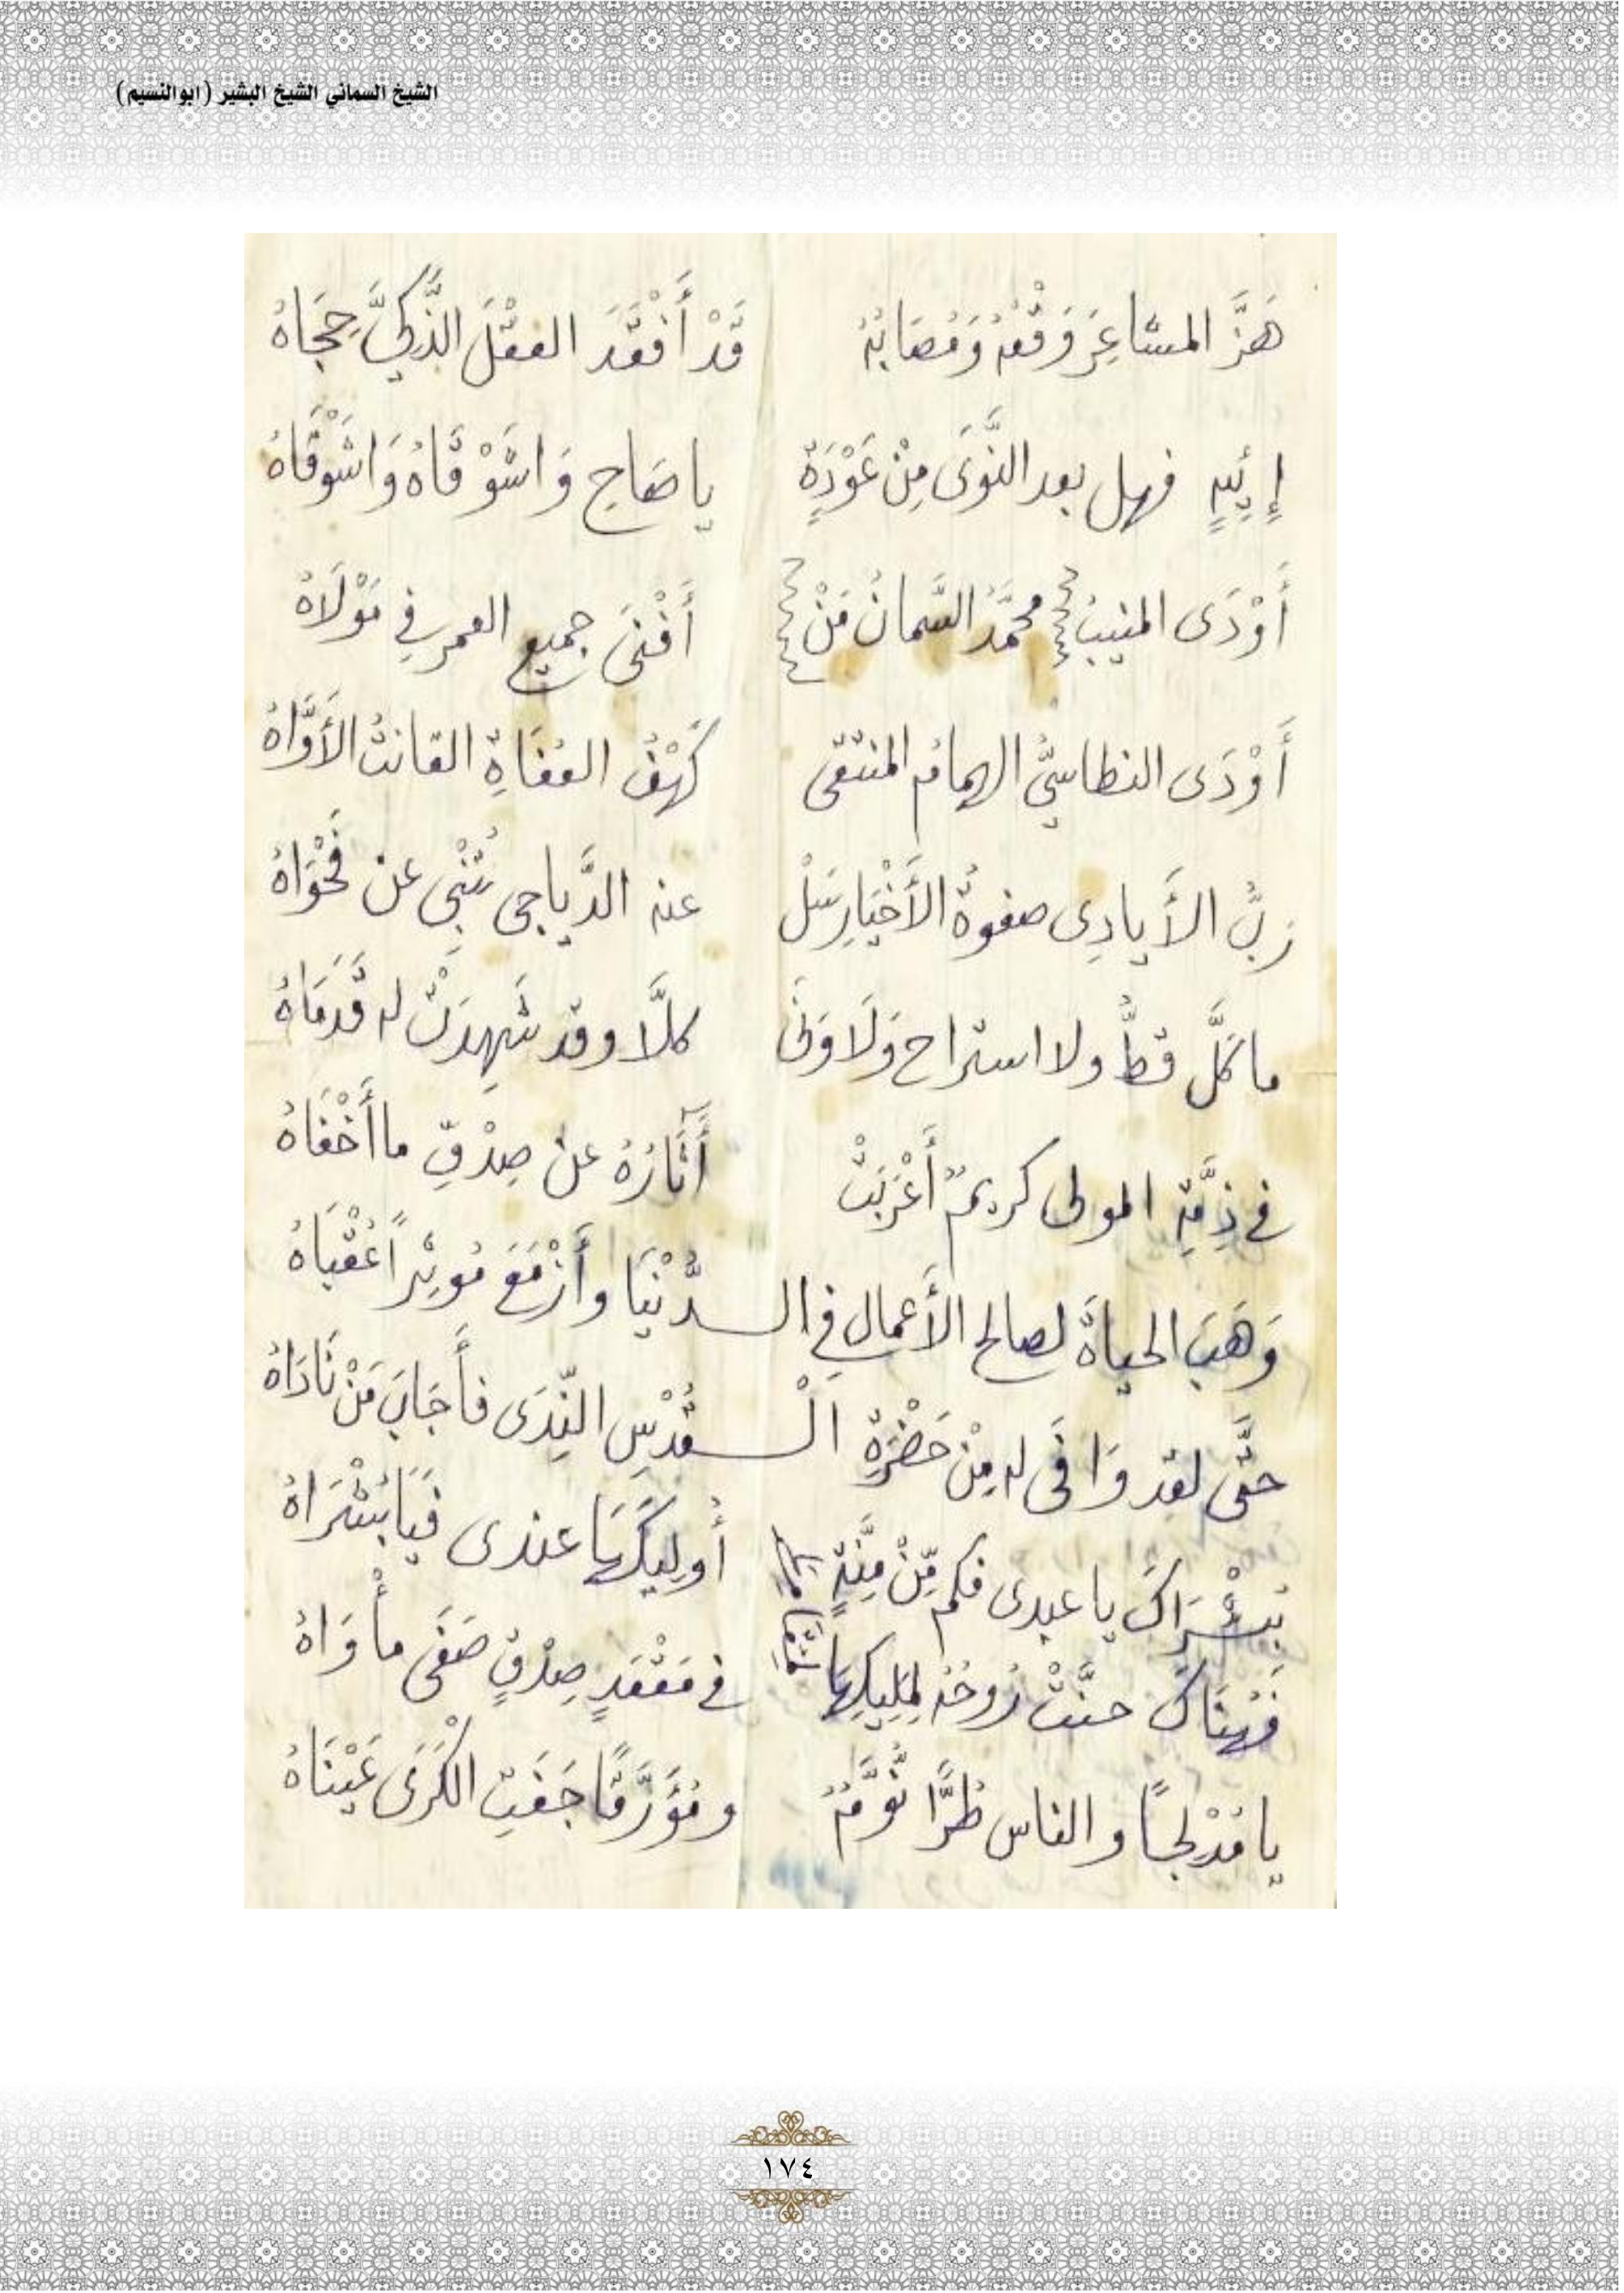 الشيخ السماني الشيخ البشير (ابوالنسيم)
هَزَّ المشاعِرَ وَقْعُهُ وَمُصَابُهُ قَدْ أَفْقَدَ العقْلَ الذَّكِيَّ حِجَاهُ
إِيْهٍ فهل بعد النَّوَى مِنْ عَوْدَةٍ يا صَاحِ وَاشَوْقَاهُ وَاشَوْقَاهُ
أَوْدَى المنيبُ محمَّدُ السَّمانُ مَنْ أَفْنَى جميع العمر في مَوْلَاهُ
أَوْدَى النطاسيُّ الهمامُ المنتقى كَهْفُ العُفَاةِ القانتُ الأَوَّاهُ
رَبُّ الأَيادِى صفوةُ الأَخْيَارِ سَلْ عنه الدَّياجى تُنْبِى عن فَحْوَاهُ
ما كَلَّ قطُّ ولا استراح وَلَا وَنَى كلَّا وقد شَهِدَتْ له قَدَمَاهُ
في ذِمَّةِ المولى كريمٌ أَعْرَبَتْ آثَارُهُ عن صِدْقِ ما أَخْفَاهُ
وَهَبَ الحياةَ لصالح الأَعمالِ في الـدُّنْيَا وأَزْمَعَ مُوثِرًا عُقْبَاهُ
حتَّى لقد وَافَى له مِنْ حَضْرَةِ الْـقُدْسِ النِّدَى فأَجَابَ مَنْ نَادَاهُ
بُشْرَاكَ يا عبدى فكم مِّنْ مِنَّةٍ أُولِيكَهَا عندى فَيَا بُشْرَاهُ
فَهُنَاكَ حنَّتْ رُوحُهُ لِمَلِيكِهَا في مَقْعَدِ صِدْقٍ صَفَى مأْوَاهُ
يا مُدْلِجًا والناس طُرًّا نُوَّمٌ ومُؤَرَّقًا جَفَتِ الْكَرَى عَيْنَاهُ
١٧٤